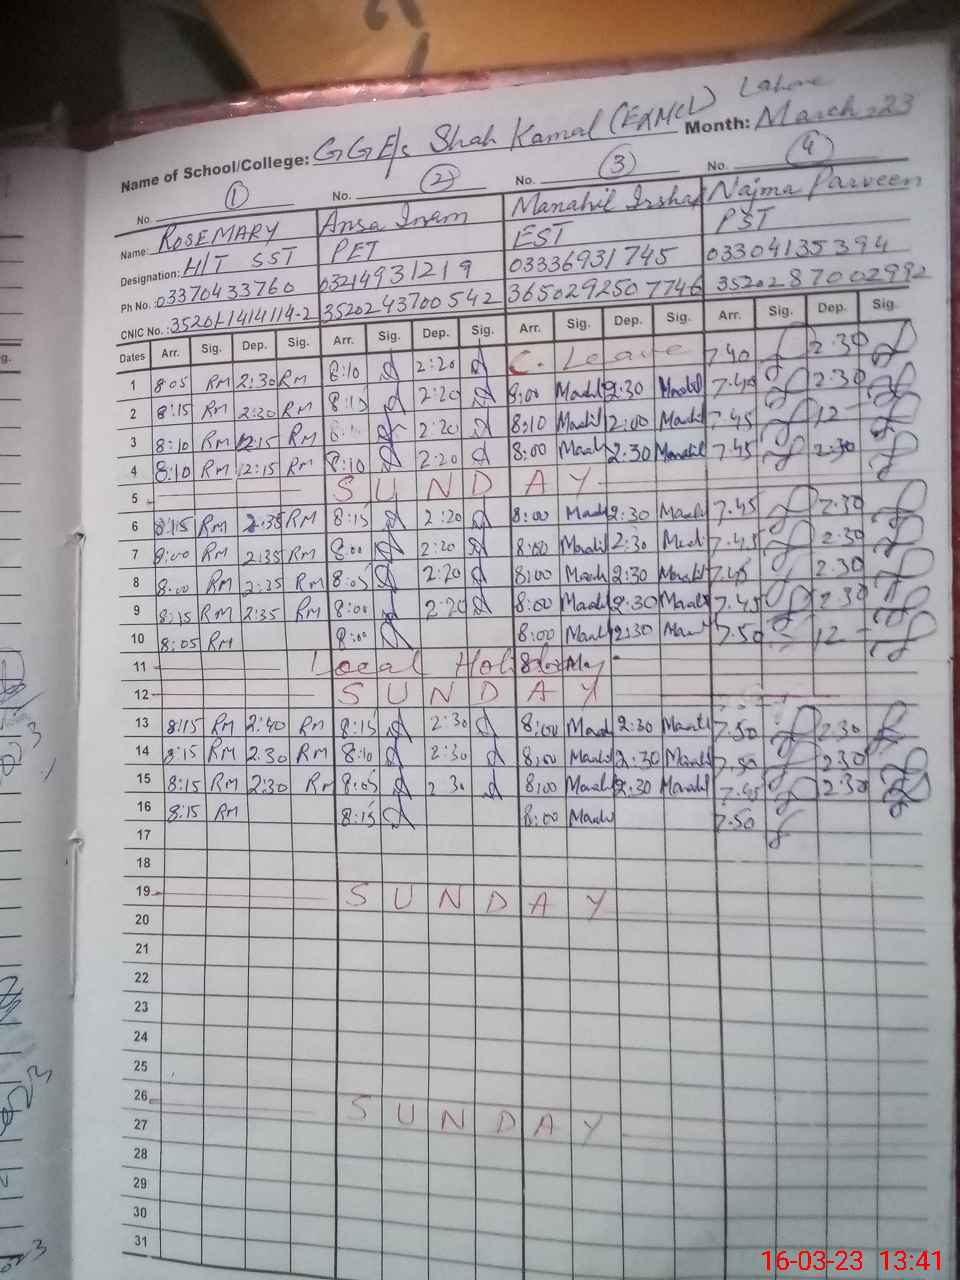 Lahore
Name of School/College: GGE/s Shah Kamal (EXMCL) Month: March-23
No. 1 No. 2 No. 3 No. 4
Name: ROSEMARY Ansa Inam Manahil Irshad Najma Parveen
Designation: H/T SST PET EST PST
Ph No. 03370433760 03214931219 03336931745 03304135394
CNIC No.: 35201-1414114-2 3520243700542 3650292507746 3520287002992
Dates Arr. Sig. Dep. Sig. Arr. Sig. Dep. Sig. Arr. Sig. Dep. Sig. Arr. Sig. Dep. Sig.
1 8:05 RM 2:30 RM 8:10 2:20 C. Leave 7.40 2.30
2 8:15 RM 2:30 RM 8:10 2:20 8:00 2:30 7.45 2.30
3 8:10 RM 12:15 RM 2:20 8:10 2:00 7.45 12
4 8:10 RM 12:15 RM 8:10 2:20 8:00 2.30 Manahil 7.45 2.30
5 SUNDAY
6 8:15 RM 2:35 RM 8:15 2:20 8:00 2:30 7.45 2.30
7 8:00 RM 2:35 RM 8:00 2:20 8:00 2:30 7.45 2.30
8 8:00 RM 2:35 RM 8:05 2:20 8:00 2:30 7.45 2.30
9 8:15 RM 2:35 RM 8:00 2:20 8:00 2:30 7.45 2.30
10 8:05 RM 8:00 8:00 2:30 7.50 12
11 Local Holiday
12 SUNDAY
13 8:15 RM 2:40 RM 8:15 2:30 8:00 2:30 7.50 2.30
14 8:15 RM 2:30 RM 8:10 2:30 8:00 2:30 7.50 2.30
15 8:15 RM 2:30 RM 8:05 2 30 8:00 2:30 7.45 2:30
16 8:15 RM 8:15 8:00 7.50
17
18
19 SUNDAY
20
21
22
23
24
25
26 SUNDAY
27
28
29
30
31
16-03-23 13:41